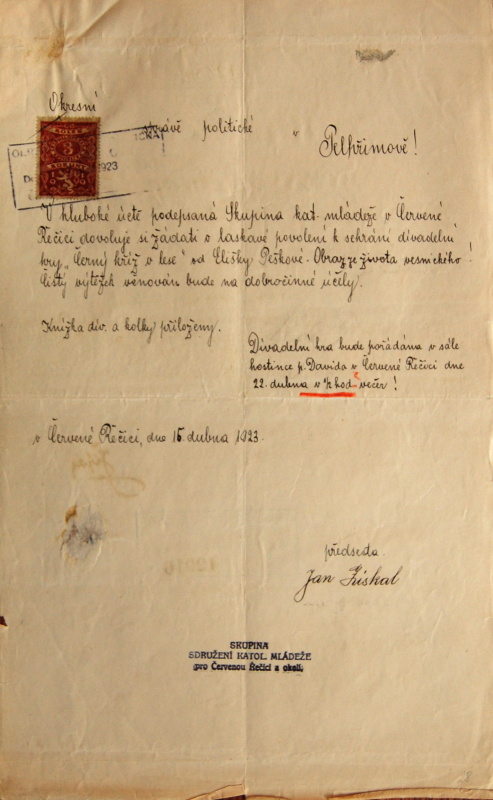 Okresní
správě politické v Pelhřimově!
KOLEK
3
KORUNY
1923
V hluboké úctě podepsaná Skupina kat. mládeže v Červené
Řečici dovoluje si žádati o laskavé povolení k sehrání divadelní
hry „Černý kříž v lese“ od Elišky Peškové - Obraz ze života vesnického!
Čistý výtěžek věnován bude na dobročinné účely.
Knížka div. a kolky přiloženy.
Divadelní hra bude pořádána v sále
hostince p. Davida v Červené Řečici dne
22. dubna v hod večer!
v Červené Řečici, dne 15. dubna 1923.
předseda
Jan
SKUPINA
SDRUŽENÍ KATOL. MLÁDEŽE
pro Červenou Řečici a okolí.